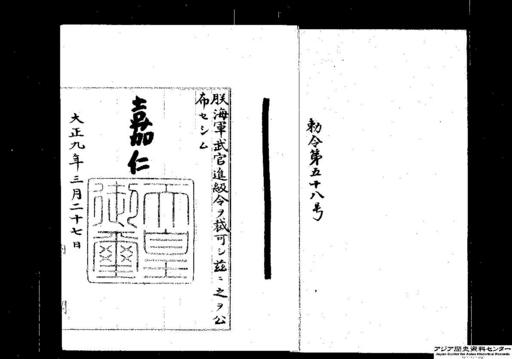 勅令第五十八号
朕海軍武官進級令ヲ裁可シ茲ニ之ヲ公
布セシム
嘉仁
天皇御璽
大正九年三月二十七日
アジア歴史資料センター
Japan Center for Asian Historical Records